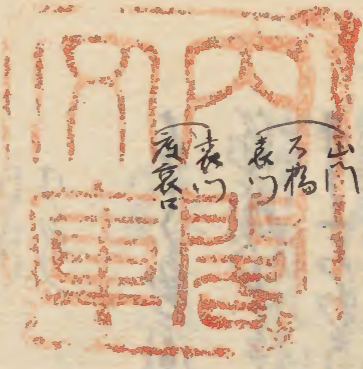 内閣
文庫
山門
石橋
表門
表門
裏口